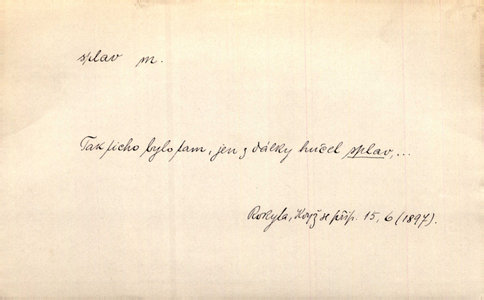 splav m.
Tak ticho bylo tam, jen z dálky hučel splav,...
Rokyta, Když se přip. 15, 6 (1897).